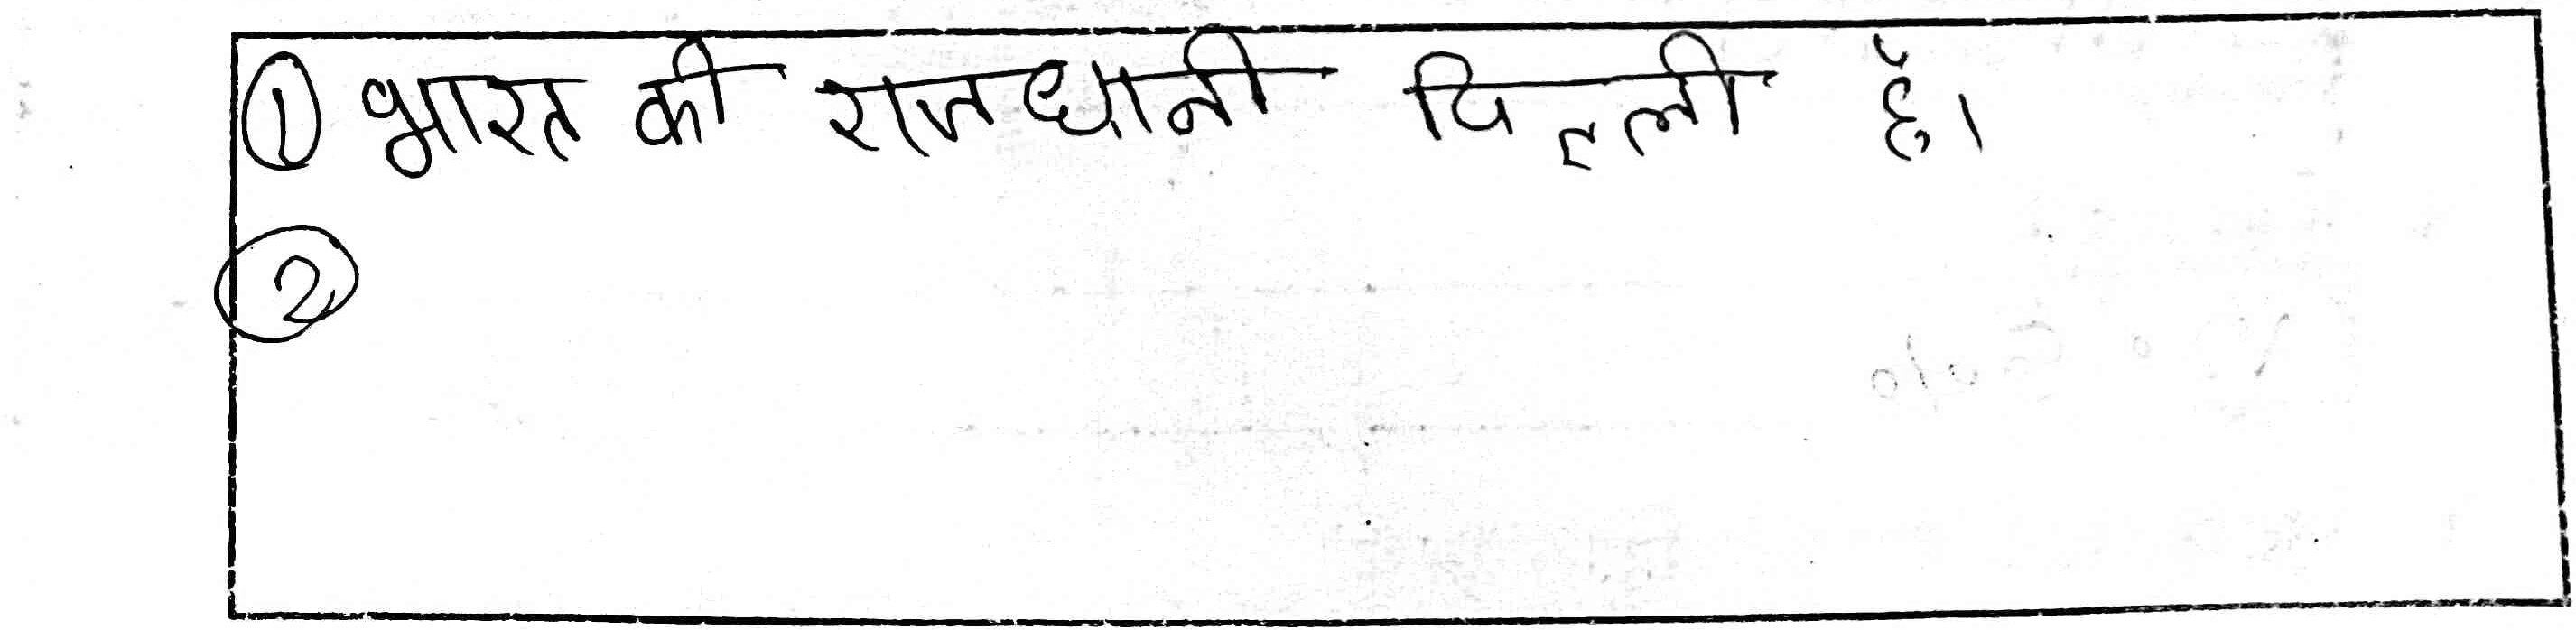 ① भारत की राजधानी दिल्ली है।
②